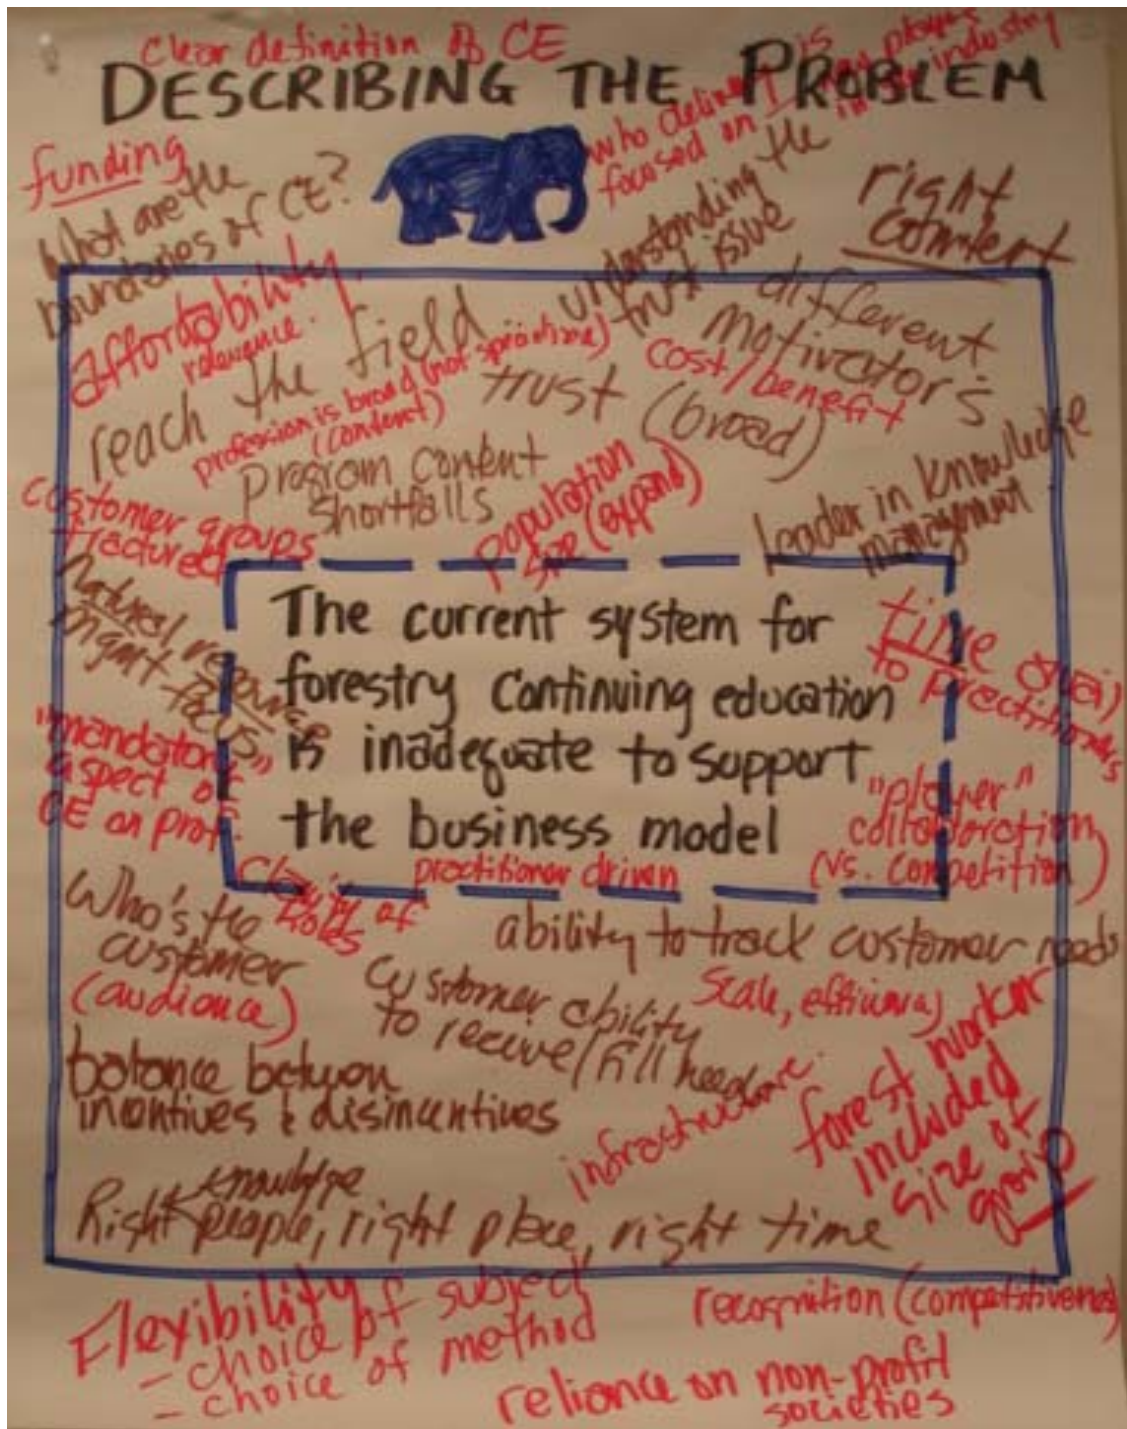 clear definition of CE
DESCRIBING THE PROBLEM
who delivers is
focused on players
in the industry
funding
What are the
boundaries of CE?
understanding the
trust issue
right
content
affordability
relevance.
reach the field
profession is broad (not
(content)
different
motivator's
cost/benefit
trust (broad)
program content
shortfalls
population
size (expand)
Leader in knowledge
management
customer groups
fractured
Natural resource
mgmt focus
"mandatory"
aspect of
CE on prof.
The current system for
forestry continuing education
is inadequate to support
the business model
time
to practitioners
"player"
collaboration
(vs. competition)
practitioner driven
Clarity of
roles
Who's the
customer
(audience)
ability to track customer needs
customer ability
to receive/fill need
scale, efficiency
balance between
incentives & disincentives
infrastructure
forest worker
included
size of
group
knowledge
Right people, right place, right time
Flexibility of subject
- choice of method
- choice
recognition (competitiveness)
reliance on non-profit
societies